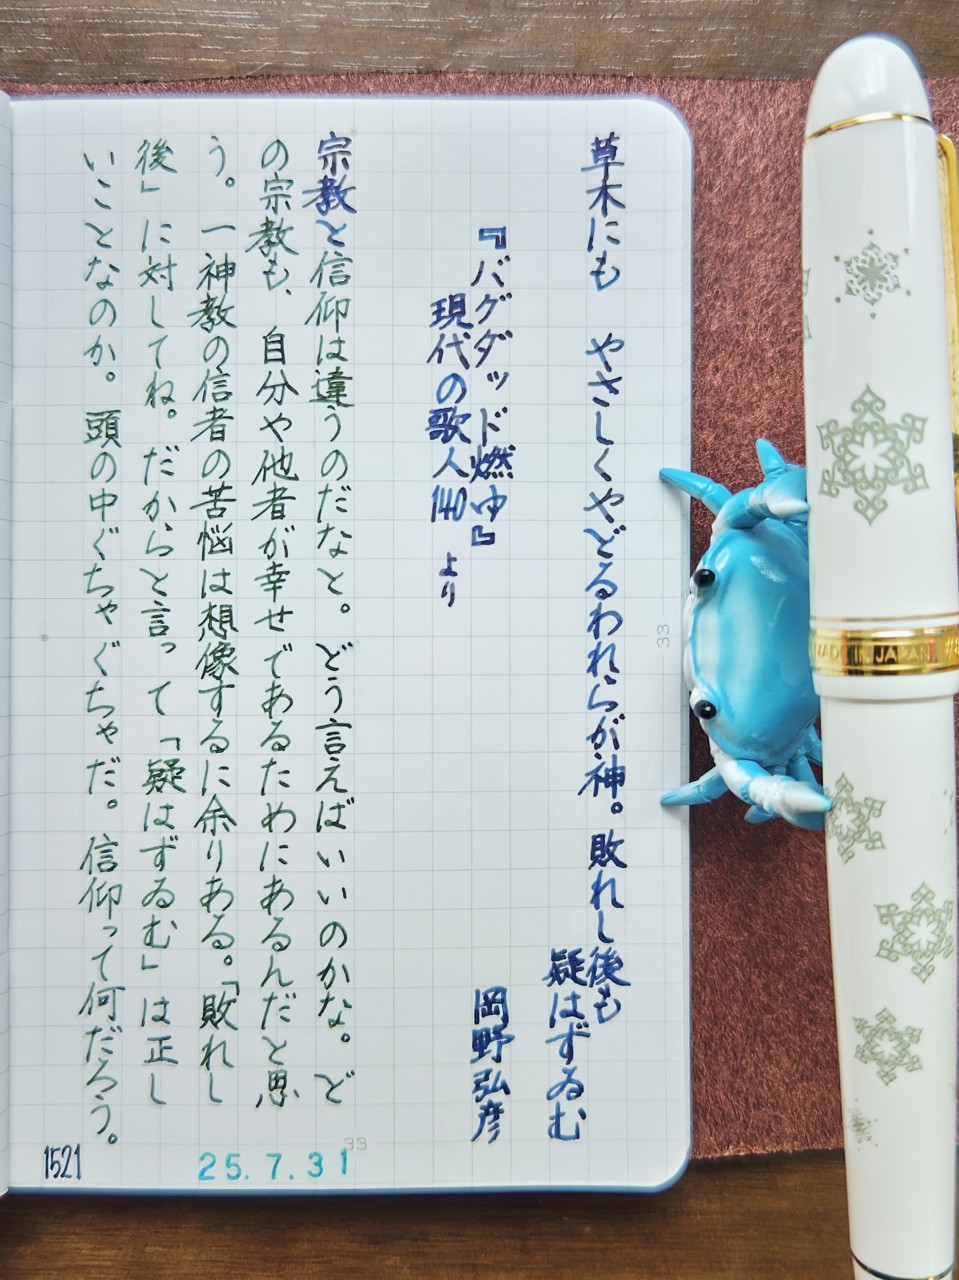 草木にも　やさしくやどるわれらが神。敗れし後も
疑はずゐむ
『バグダッド燃ゆ』
岡野弘彦
現代の歌人140 より
宗教と信仰は違うのだなと。どう言えばいいのかな。ど
の宗教も、自分や他者が幸せであるためにあるんだと思
う。一神教の信者の苦悩は想像するに余りある。「敗れし
後」に対してね。だからと言って「疑はずゐむ」は正し
いことなのか。頭の中ぐちゃぐちゃだ。信仰って何だろう。
33
33
25.7.31
1521
MADE IN JAPAN